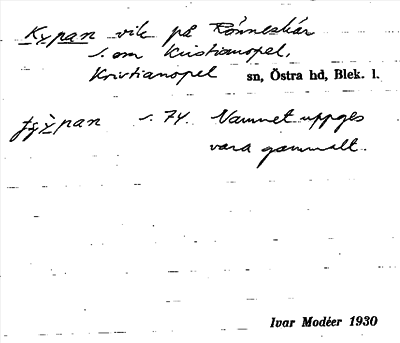 Kypan vik på Rönneskär
s. om Kristianopel.
Kristianopel sn, Östra hd, Blek. l.
s. 74. Namnet uppges
vara gammalt.
Ivar Modéer 1930